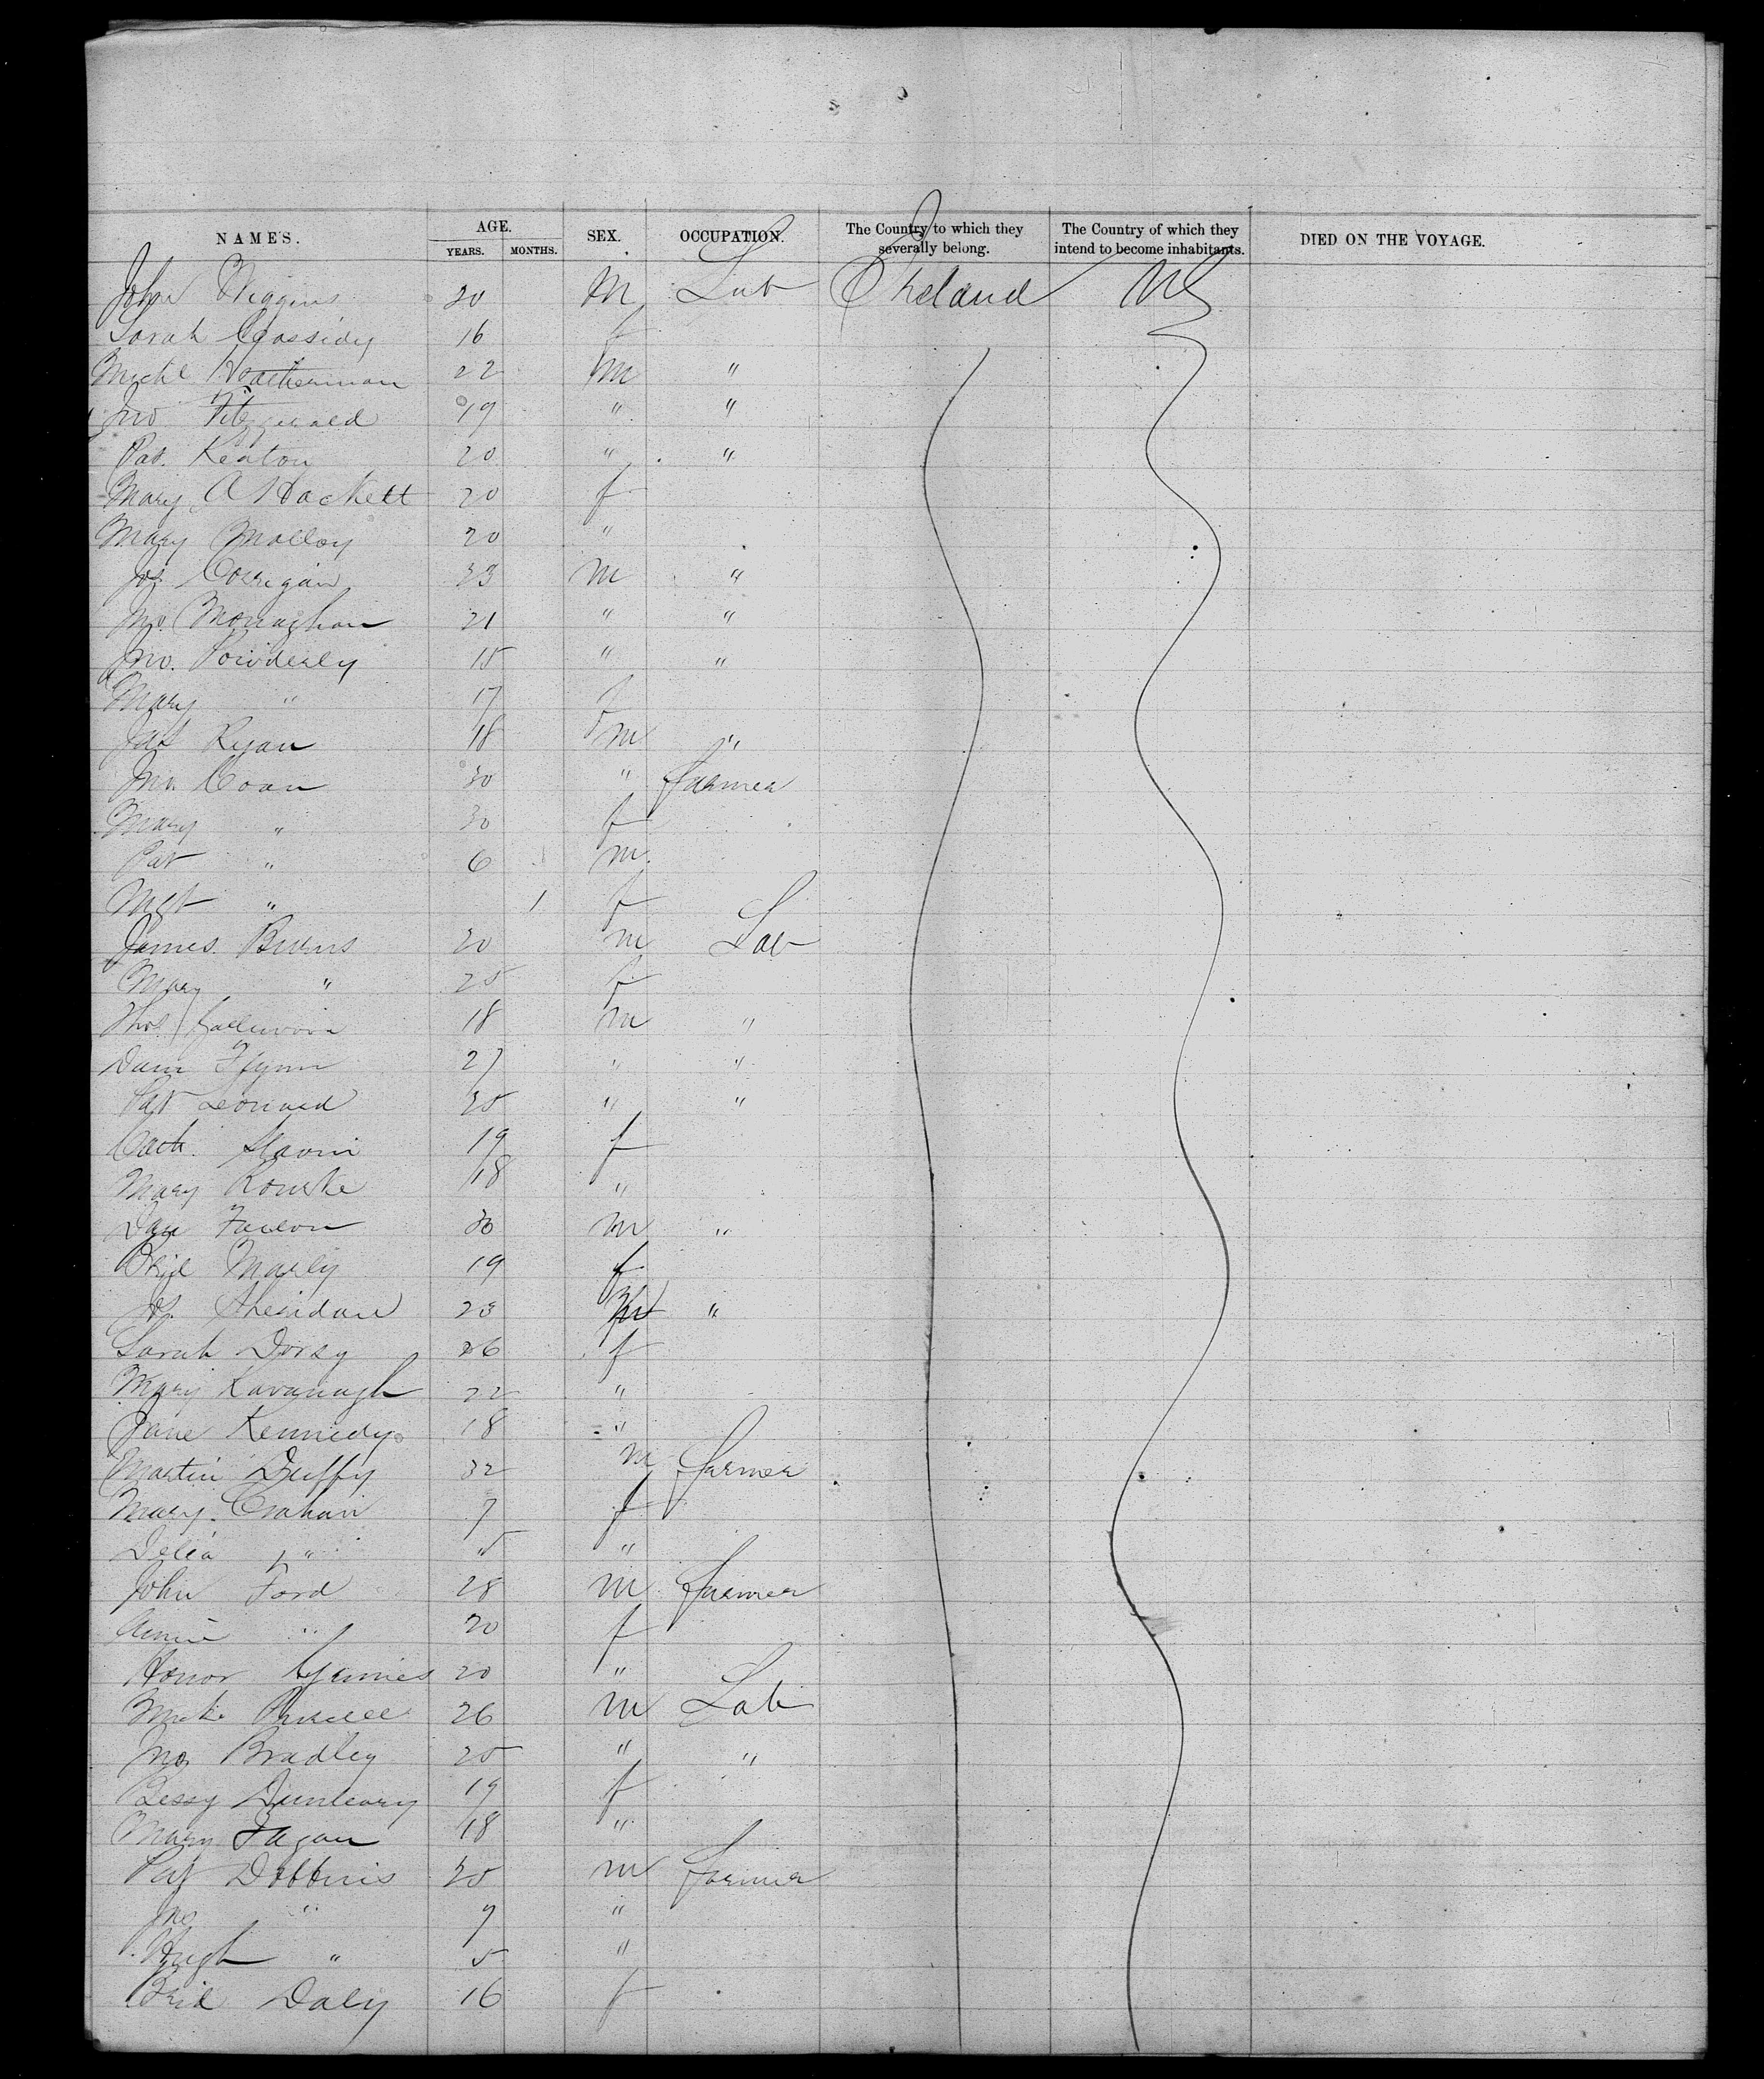 NAMES. AGE. YEARS. MONTHS. SEX. OCCUPATION. The Country to which they severally belong. The Country of which they intend to become inhabitants. DIED ON THE VOYAGE.
John Wiggins 20 M Lab Ireland US
Sarah Cassidy 16 f
Michl 22 m "
Jno Fitzgerald 19 " "
Pat. Keaton 20 " "
Mary A Hackett 20 f
Mary Molloy 20 "
Jos. Corrigan 33 m "
Jno. Monaghan 21 " "
Jno. Powderly 15 " "
Mary " 17 f
Jas Ryan 18 m "
Jno. Coan 30 " farmer
Mary " 30 f
Pat " 6 m
Mgt " 1 f
James Burns 20 m Lab
Mary " 25 f
Thos 18 m "
Dan Flynn 27 " "
Pat Leonard 35 " "
Cath. Slavin 19 f
Mary Rourke 18 "
30 m "
Marly 19 f
Sheridan 23 m "
Sarah Dorsy 26 f
Mary Kavanagh 22 "
Jane Kennedy 18 "
Martin Duffy 32 m farmer
Mary Crahan 7 f
Delia " 5 "
John Ford 28 m farmer
Annie " 20 f
Honor 20 "
Mike 26 m Lab
Jno Bradley 25 " "
Bessy Dunleavy 19 f
Mary Fagan 18 "
Pat Dobbins 35 m farmer
Jno " 7 "
Hugh " 5 "
Brid Daly 16 f